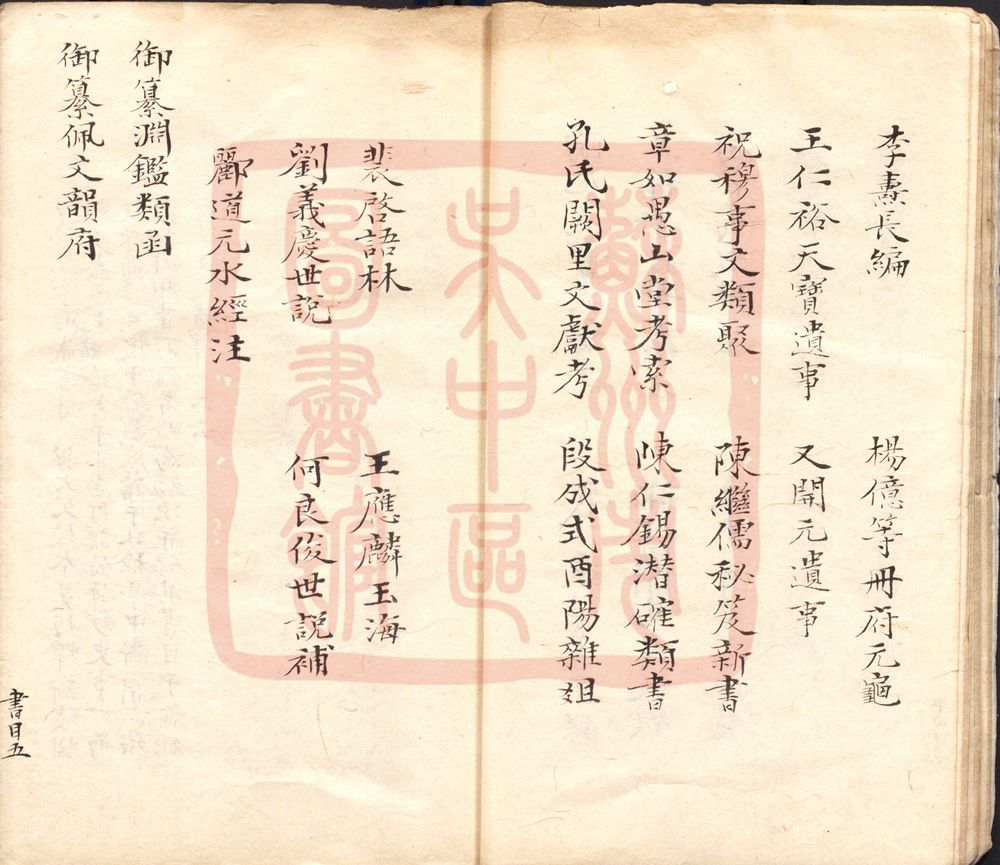 李燾長編 楊億等冊府元龜
王仁裕天寶遺事 又開元遺事
祝穆事文類聚 陳繼儒秘笈新書
章如愚山堂考索 陳仁錫潛確類書
孔氏闕里文獻考 段成式酉陽雜俎
裴啓語林 王應麟玉海
劉義慶世說 何良俊世說補
酈道元水經注
御纂淵鑑類函
御纂佩文韻府
書目五
蘇州市
吴中区
圖書館